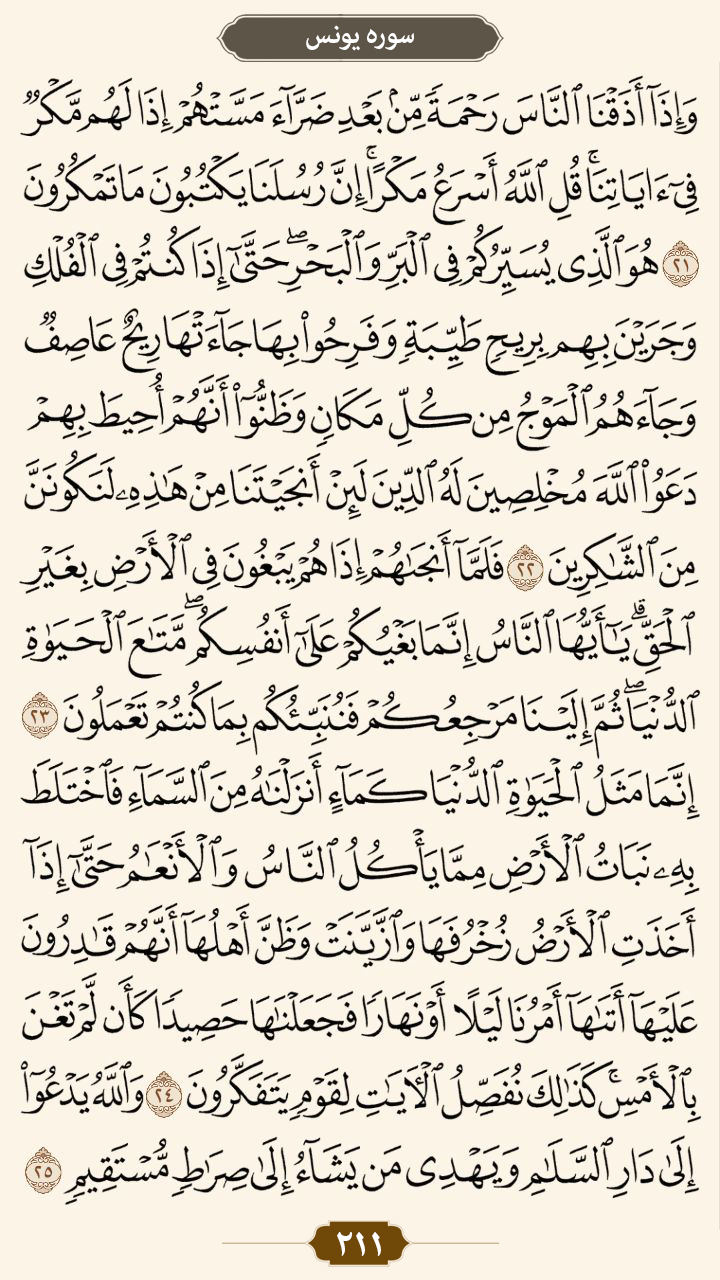 سوره یونس
وَإِذَآ أَذَقْنَا ٱلنَّاسَ رَحْمَةً مِّنۢ بَعْدِ ضَرَّآءَ مَسَّتْهُمْ إِذَا لَهُم مَّكْرٌ
فِىٓ ءَايَاتِنَا ۚ قُلِ ٱللَّهُ أَسْرَعُ مَكْرًا ۚ إِنَّ رُسُلَنَا يَكْتُبُونَ مَا تَمْكُرُونَ
٢١ هُوَ ٱلَّذِى يُسَيِّرُكُمْ فِى ٱلْبَرِّ وَٱلْبَحْرِ ۖ حَتَّىٰٓ إِذَا كُنتُمْ فِى ٱلْفُلْكِ
وَجَرَيْنَ بِهِم بِرِيحٍ طَيِّبَةٍ وَفَرِحُوا۟ بِهَا جَآءَتْهَا رِيحٌ عَاصِفٌ
وَجَآءَهُمُ ٱلْمَوْجُ مِن كُلِّ مَكَانٍ وَظَنُّوٓا۟ أَنَّهُمْ أُحِيطَ بِهِمْ
دَعَوُا۟ ٱللَّهَ مُخْلِصِينَ لَهُ ٱلدِّينَ لَئِنْ أَنجَيْتَنَا مِنْ هَٰذِهِۦ لَنَكُونَنَّ
مِنَ ٱلشَّاكِرِينَ ٢٢ فَلَمَّآ أَنجَىٰهُمْ إِذَا هُمْ يَبْغُونَ فِى ٱلْأَرْضِ بِغَيْرِ
ٱلْحَقِّ ۗ يَٰٓأَيُّهَا ٱلنَّاسُ إِنَّمَا بَغْيُكُمْ عَلَىٰٓ أَنفُسِكُم ۖ مَّتَٰعَ ٱلْحَيَوٰةِ
ٱلدُّنْيَا ۖ ثُمَّ إِلَيْنَا مَرْجِعُكُمْ فَنُنَبِّئُكُم بِمَا كُنتُمْ تَعْمَلُونَ ٢٣
إِنَّمَا مَثَلُ ٱلْحَيَوٰةِ ٱلدُّنْيَا كَمَآءٍ أَنزَلْنَٰهُ مِنَ ٱلسَّمَآءِ فَٱخْتَلَطَ
بِهِۦ نَبَاتُ ٱلْأَرْضِ مِمَّا يَأْكُلُ ٱلنَّاسُ وَٱلْأَنْعَٰمُ حَتَّىٰٓ إِذَآ
أَخَذَتِ ٱلْأَرْضُ زُخْرُفَهَا وَٱزَّيَّنَتْ وَظَنَّ أَهْلُهَآ أَنَّهُمْ قَٰدِرُونَ
عَلَيْهَآ أَتَىٰهَآ أَمْرُنَا لَيْلًا أَوْ نَهَارًا فَجَعَلْنَٰهَا حَصِيدًا كَأَن لَّمْ تَغْنَ
بِٱلْأَمْسِ ۚ كَذَٰلِكَ نُفَصِّلُ ٱلْءَايَٰتِ لِقَوْمٍ يَتَفَكَّرُونَ ٢٤ وَٱللَّهُ يَدْعُوٓا۟
إِلَىٰ دَارِ ٱلسَّلَٰمِ وَيَهْدِى مَن يَشَآءُ إِلَىٰ صِرَٰطٍ مُّسْتَقِيمٍ ٢٥
٢١١